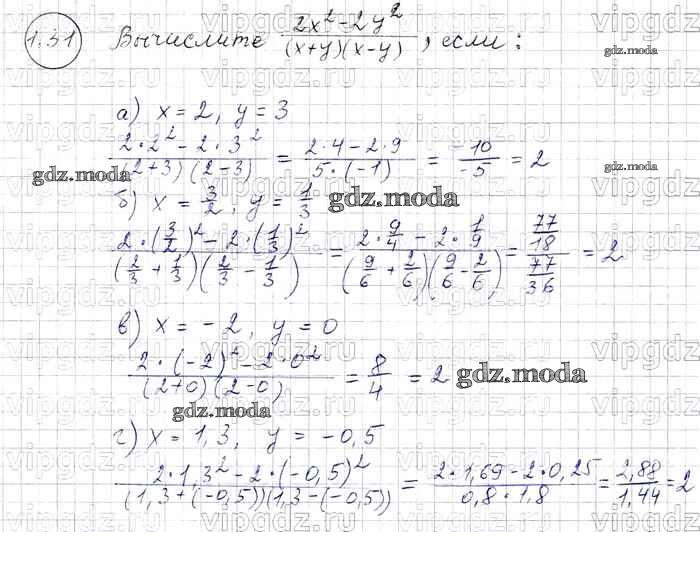 1.31 Вычислите (2x²-2y²)/((x+y)(x-y)), если:
gdz.moda
а) x = 2, y = 3
(2·2²-2·3²)/((2+3)(2-3)) = (2·4-2·9)/(5·(-1)) = (-10)/(-5) = 2
gdz.moda
б) x = 3/2, y = 1/3
gdz.moda
(2·(3/2)²-2·(1/3)²)/((2/3+1/3)(2/3-1/3)) = (2·9/4-2·1/9)/((9/6+2/6)(9/6-2/6)) = (77/18)/(77/36) = 2
в) x = -2, y = 0
(2·(-2)²-2·0²)/((2+0)(2-0)) = 8/4 = 2
gdz.moda
gdz.moda
г) x = 1,3, y = -0,5
(2·1,3²-2·(-0,5)²)/((1,3+(-0,5))(1,3-(-0,5))) = (2·1,69-2·0,25)/(0,8·1,8) = 2,88/1,44 = 2